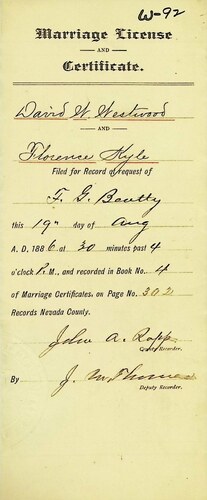 W-92
Marriage License
AND
Certificate.
David W. Westwood
AND
Florence Kyle
Filed for Record at request of
F. G. Beatty
this 19th day of Aug
A. D. 1886 at 30 minutes past 4
o'clock P. M., and recorded in Book No. 4
of Marriage Certificates, on Page No. 302
Records Nevada County.
John A. Rapp
County Recorder.
By J. M. Thomas
Deputy Recorder.